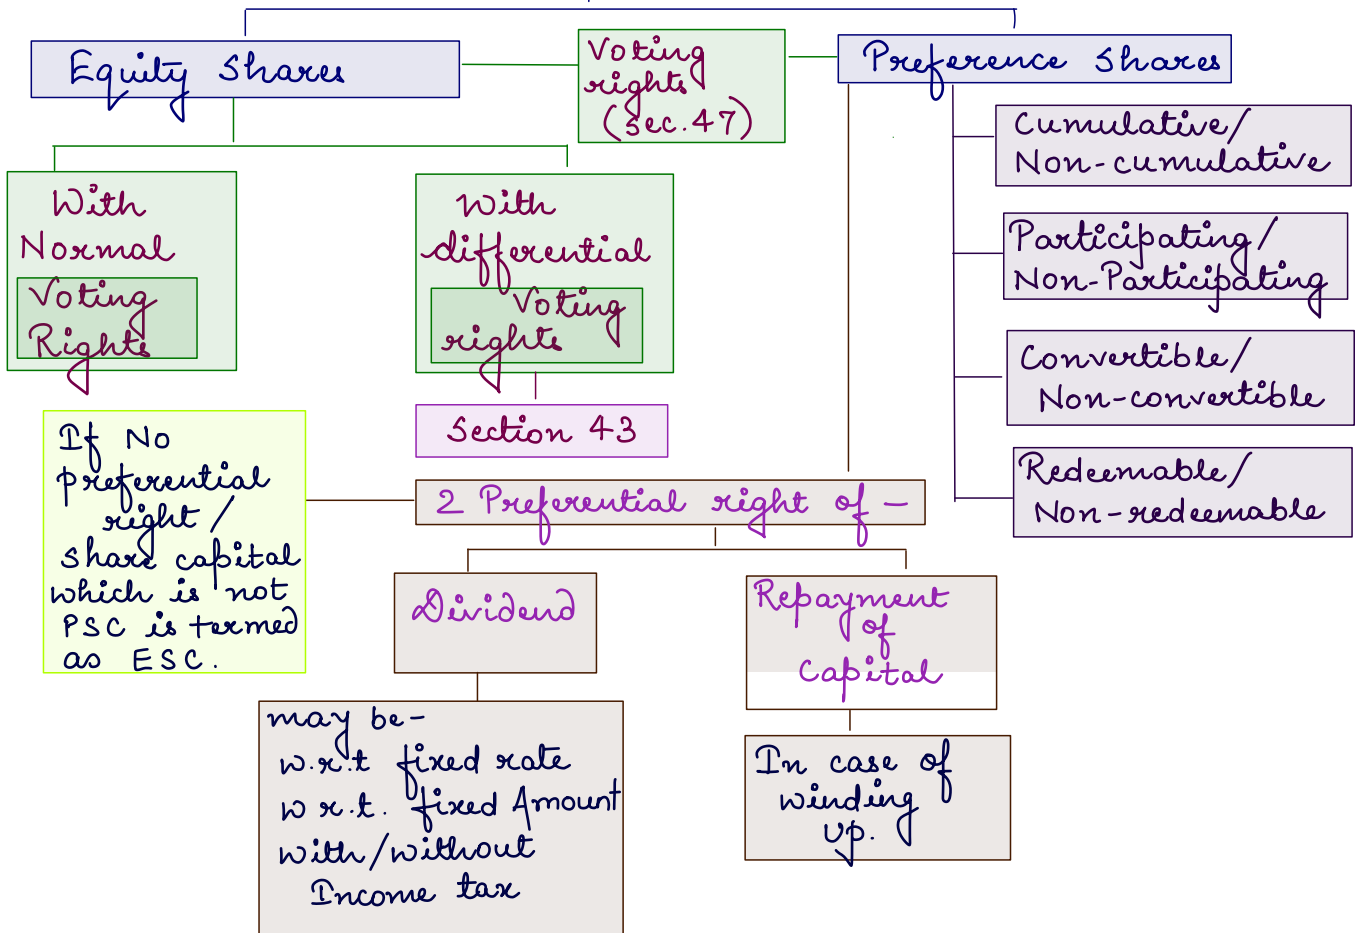 Equity Shares
Voting
rights
(Sec. 47)
Preference Shares
Cumulative/
Non-cumulative
Participating/
Non-Participating
Convertible/
Non-convertible
Redeemable/
Non-redeemable
With
Normal
Voting
Rights
With
differential
Voting
rights
Section 43
If No
preferential
right /
Share capital
which is not
PSC is termed
as ESC.
2 Preferential right of -
Dividend
Repayment
of
Capital
may be-
w.r.t fixed rate
w r.t. fixed Amount
with/without
Income tax
In case of
winding
up.